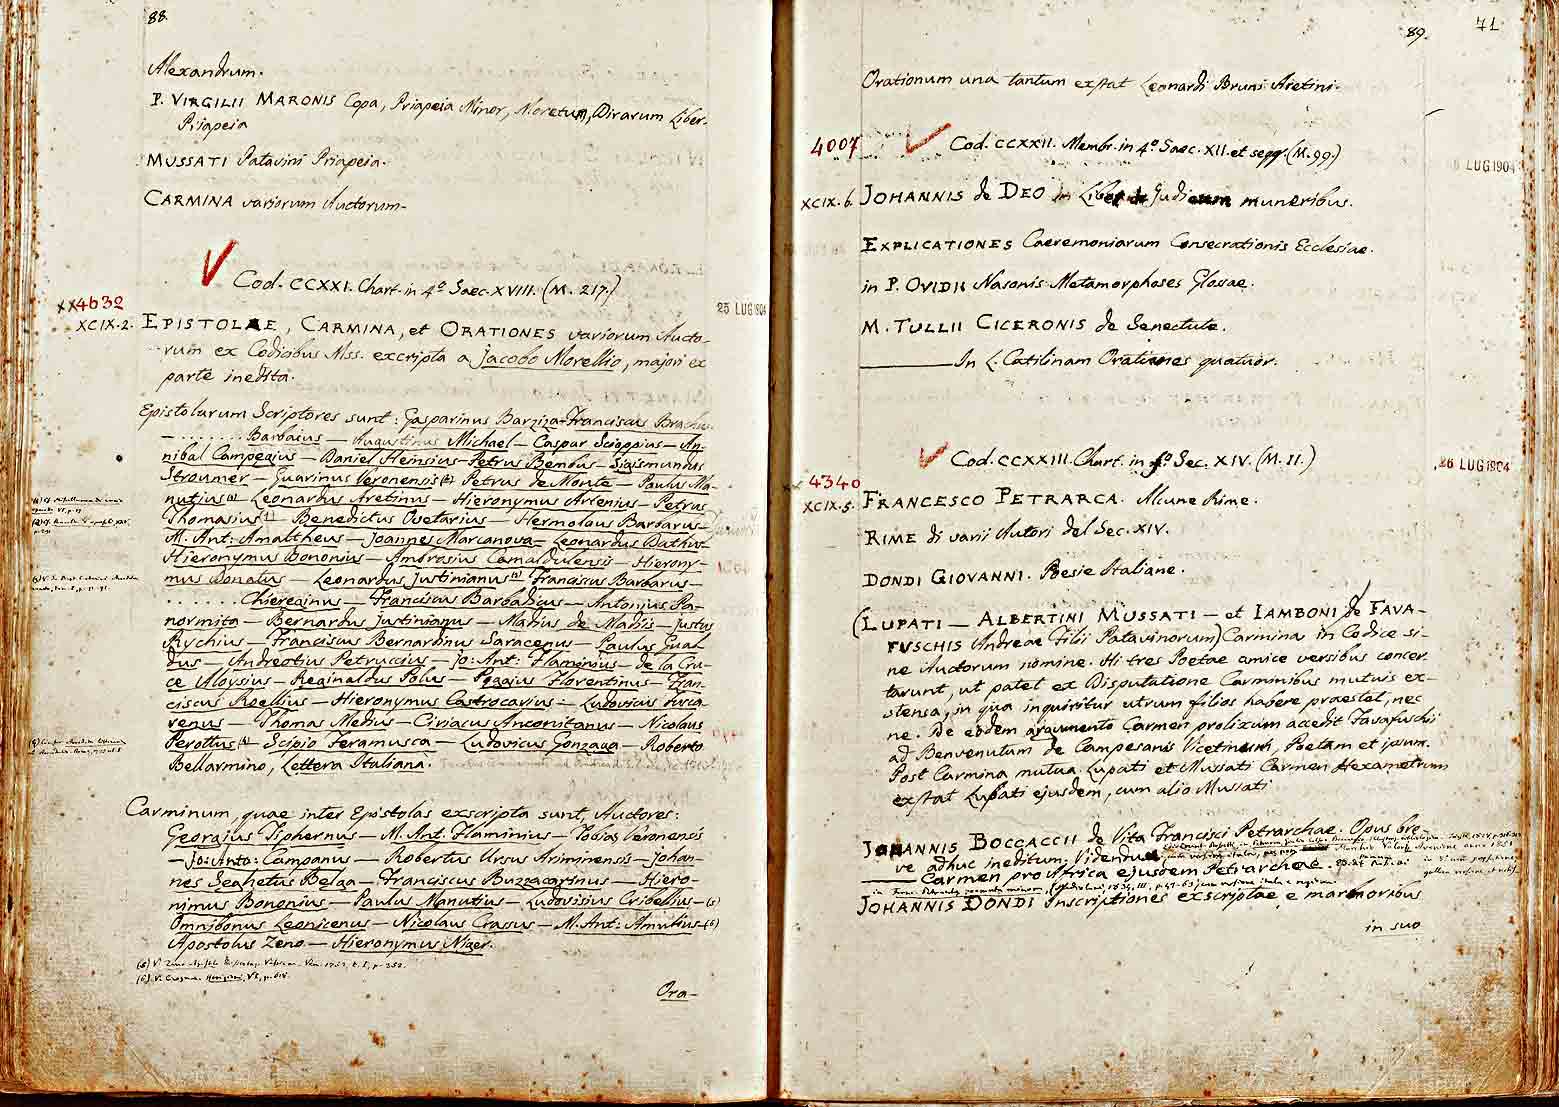 88.
Alexandrum.
P. VIRGILII MARONIS Copa, Priapeia Minor, Moretum, Dirarum Liber-
Priapeia
MUSSATI Patavini Priapeia.
CARMINA variorum Auctorum-
Cod. CCXXI. Chart. in 4º Saec. XVIII. (M. 217.)
xx4632
25 LUG 1904
XCIX.2.
EPISTOLAE, CARMINA, et ORATIONES variorum Aucto-
rum ex Codicibus Mss. excripta a Jacobo Morellio, majori ex
parte inedita.
Epistolarum Scriptores sunt: Gasparinus Barziza-Franciscus Brachus-
- ........ Barbaius - Augustinus Michael - Caspar Scioppius - An-
nibal Campegius - Daniel Heinsius - Petrus Bembus - Sigismundus
Stroumer - Guarinus Veronensis - Petrus de Monte - Paulus Ma-
nutius - Leonardus Aretinus - Hieronymus Artenius - Petrus
Thomasius - Benedictus Ovetarius - Hermolaus Barbarus-
M. Ant: Amaltheus - Joannes Marcanova - Leonardus Bathus-
Hieronymus Bononius - Ambrosius Camaldulensis - Hierony-
mus Donatus - Leonardus Justinianus(3) Franciscus Barbarus-
....... Chiereginus - Franciscus Barbadicus - Antonius Pa-
normita - Bernardus Justinianus - Madius de Madiis - Justus
Rychius - Franciscus Bernardinus Saracenus - Paulus Gual
dus - Andreotius Petruccius - Jo: Ant: Flaminius - de la Cru-
ce Aloysius - Reginaldus Polus - Poggius Florentinus - Fran-
ciscus Roellius - Hieronymus Castrocarius - Ludovicus
venus - Thomas Medius - Ciriacus Anconitanus - Nicolaus
Perottus(4) - Scipio Feramusca - Ludovicus Gonzaga - Roberto
Bellarmino, Lettera Italiana.
Carminum, quae inter Epistolas exscripta sunt, Auctores:
Georgius Tiphernus - M. Ant. Flaminius - Tobias Veronensis
- Jo: Anto: Campanus - Robertus Ursus Ariminensis - Johan-
nes Seghetus Belga - Franciscus Buzzacarinus - Hiero-
nimus Bononius - Paulus Manutius - Ludovisius Cribellius-(5)
Omnibonus Leonicenus - Nicolaus Crassus - M. Ant: Amultius-(6)
Apostolus Zeno - Hieronymus Niger.
Ora-
89.
71
Orationum una tantum exstat Leonardi Bruni Aretini.
4007
Cod. CCXXII. Membr. in 4º Saec. XII. et segg. (M. 99.)
LUG 1904
XCIX.6.
JOHANNIS de DEO in muneribus.
EXPLICATIONES Caeremoniarum Consecrationis Ecclesiae.
in P. OVIDII Nasonis Metamorphoses Glosae.
M. TULLII CICERONIS de Senectute.
In L. Catilinam Orationes quatuor.
Cod. CCXXIII. Chart. in Sec. XIV. (M. 11.)
26 LUG 1904
4340
XCIX.5.
FRANCESCO PETRARCA. Alcune Rime.
RIME di varii Autori del Sec. XIV.
DONDI GIOVANNI. Poesie Italiane.
(LUPATI - ALBERTINI MUSSATI - et IAMBONI de FAVA-
FUSCHIS Andreae Filii Patavinorum) Carmina in Codice si-
ne Auctorum nomine. Hi tres Poetae amice versibus concer
tarunt, ut patet ex Disputatione Carminibus mutuis ex-
stensa, in qua inquiritur utrum filios habere praestet, nec
ne. De eodem argumento Carmen prolixum accedit Favafuschii
ad Benvenutum de Campesanis Vicetinum, Poetam et ipsum.
Post Carmina mutua Lupati et Mussati Carmen Hexametrum
exstat Lupati ejusdem, cum alio Mussati
JOHANNIS BOCCACCII de Vita Francisci Petrarchae. Opus bre-
ve adhuc ineditum. Videndus
Carmen pro Africa ejusdem Petrarchae.
JOHANNIS DONDI Inscriptiones exscriptae e marmoribus
in suo